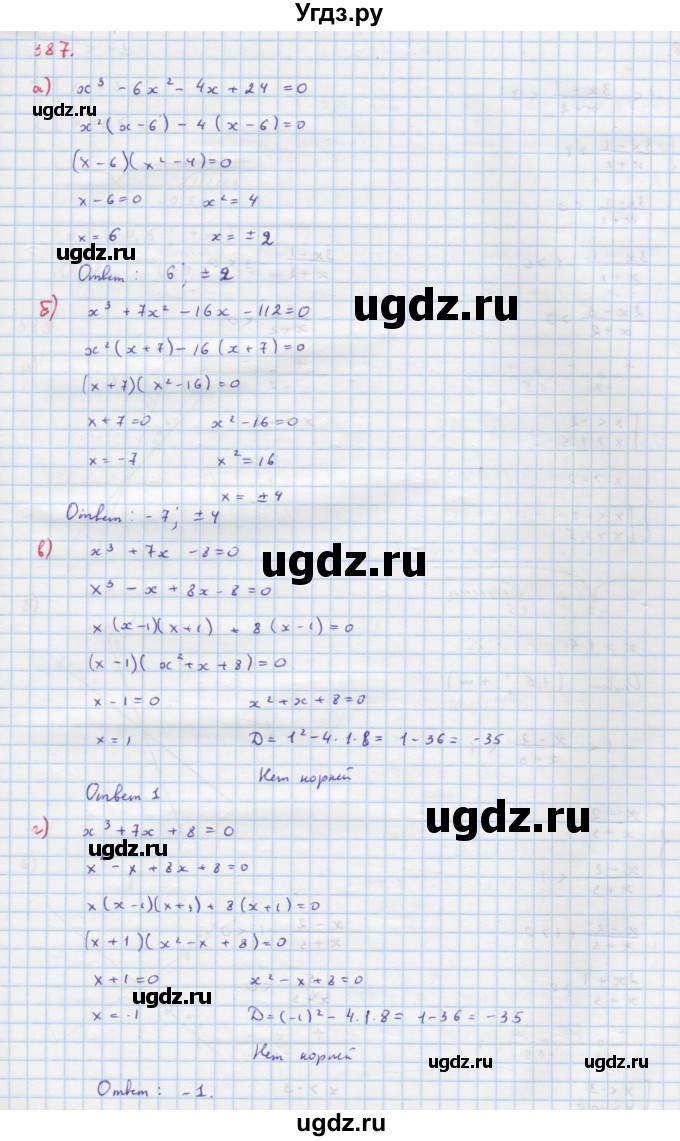 Угдз.ру
387.
а) x³ - 6x² - 4x + 24 = 0
ugdz.ru
x²(x-6) - 4(x-6)=0
(x-6)(x²-4)=0
x-6=0 x²=4
x=6 x=±2
ugdz.ru
Ответ: 6; ±2
ugdz.ru
б) x³ + 7x² - 16x - 112=0
x²(x+7) - 16(x+7)=0
ugdz.ru
(x+7)(x²-16)=0
x+7=0 x²-16=0
x=-7 x²=16
x=±4
Ответ: -7; ±4
в) x³ + 7x - 8=0
ugdz.ru
x³ - x + 8x - 8=0
x(x-1)(x+1) + 8(x-1)=0
(x-1)(x²+x+8)=0
x-1=0 x²+x+8=0
x=1 D=1²-4·1·8= 1-36= -35
Нет корней
Ответ 1
г) x³+7x+8=0
ugdz.ru
ugdz.ru
x³-x+8x+8=0
x(x-1)(x+1)+8(x+1)=0
(x+1)(x²-x+8)=0
x+1=0 x²-x+8=0
ugdz.ru
x=-1 D=(-1)²-4·1·8= 1-36= -35
Нет корней
ugdz.ru
Ответ: -1.
ugdz.ru